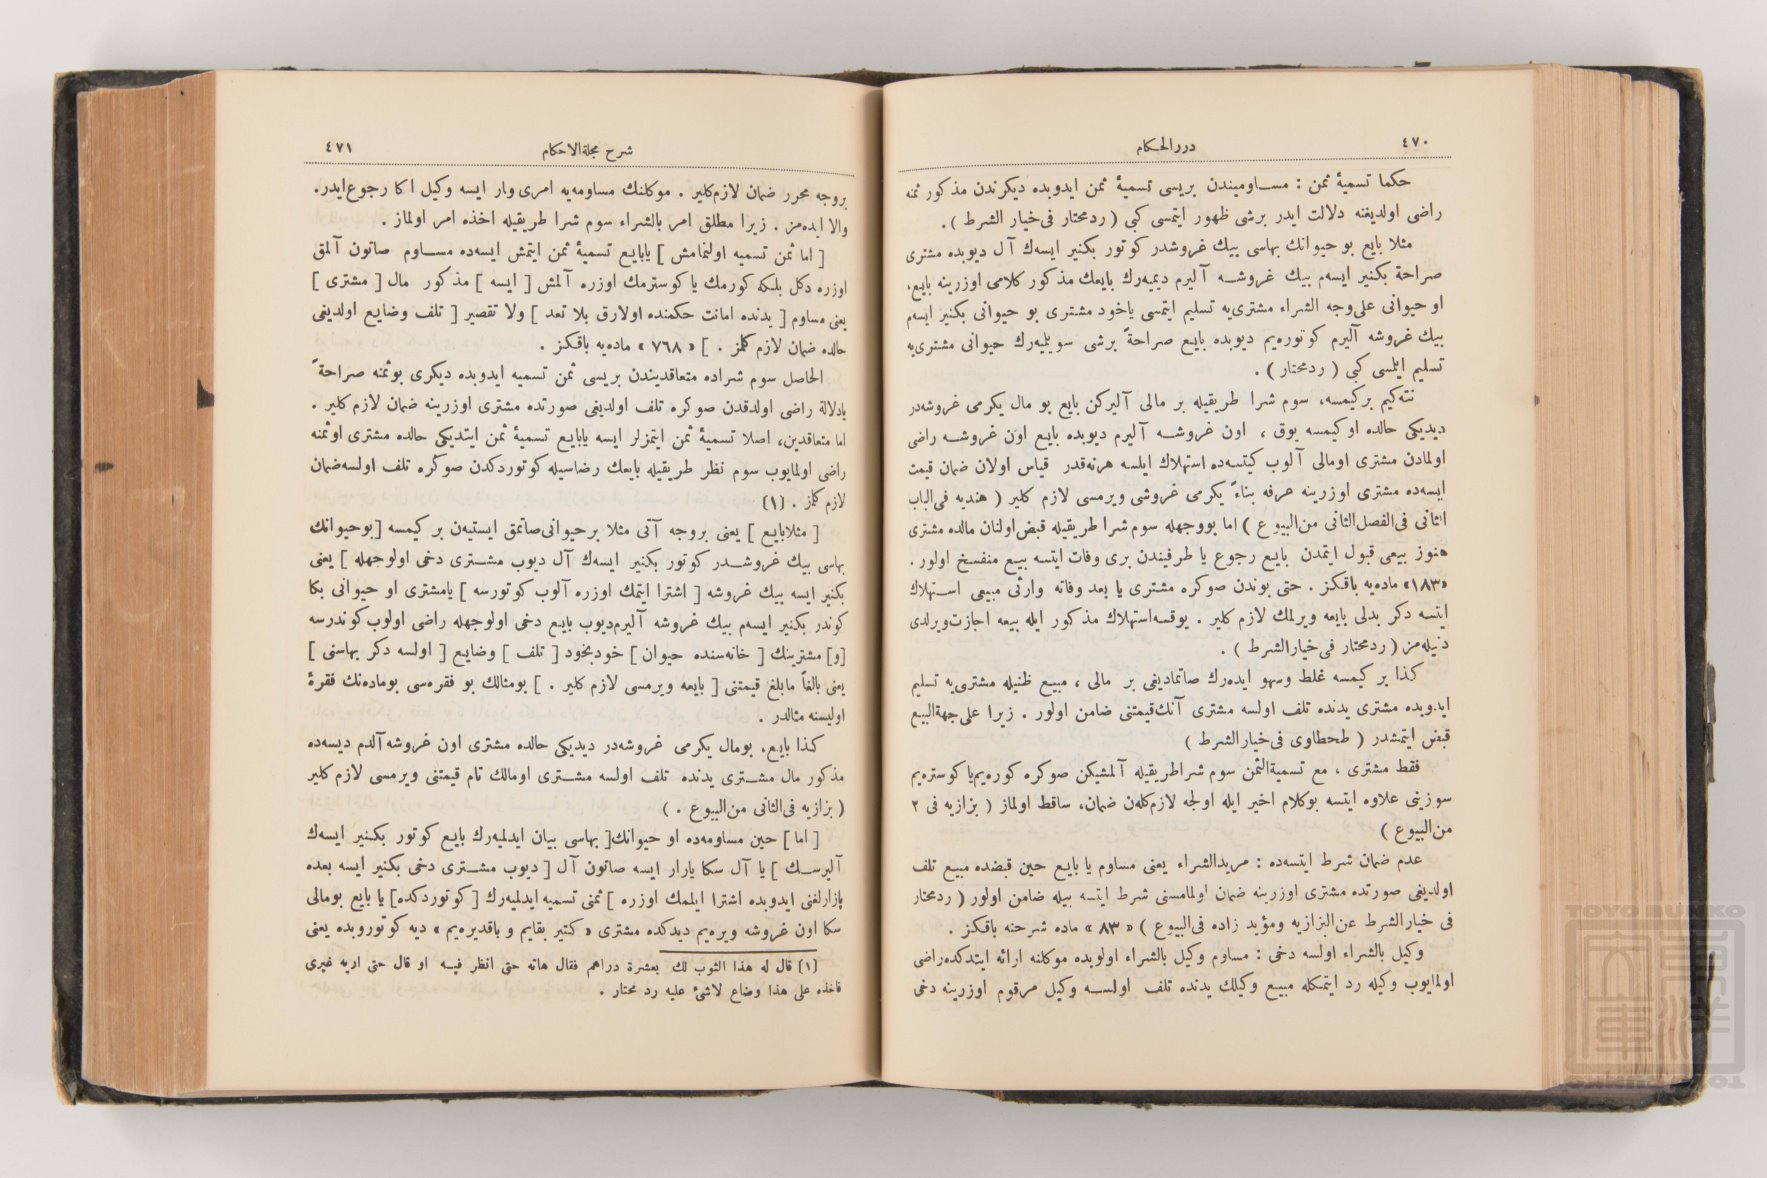 ٤٧٠
دررالحكام
حكما تسمیۀ ثمن : مساومیندن بریسی تسمیۀ ثمن ایدوبده دیكرندن مذكور ثمنه
راضی اولدیغنه دلالت ایدر برشی ظهور ایتمسی كبی ( ردمحتار فی‌خیار الشرط ) .
مثلا بایع بو حیوانك بهاسی بیك غروشدر كوتور بكنیر ایسه‌ك آل دیوبده مشتری
صراحة بكنیر ایسه‌م بیك غروشه آلیرم دیمیه‌رك بایعك مذكور كلامی اوزرینه بایع،
او حیوانی علی‌وجه الشراء مشتری‌یه تسلیم ایتمسی یاخود مشتری بو حیوانی بكنیر ایسه‌م
بیك غروشه آلیرم كوتوره‌یم دیوبده بایع صراحةً برشی سویلیه‌رك حیوانی مشتری‌یه
تسلیم ایلمسی كبی ( ردمحتار ) .
نته‌كیم بركیمسه، سوم شرا طریقیله بر مالی آلیركن بایع بو مال یكرمی غروشه‌در
دیدیكی حالده اوكیمسه یوق ، اون غروشه آلیرم دیوبده بایع اون غروشه راضی
اولمادن مشتری اومالی آلوب كیتسه‌ده استهلاك ایلسه هرنه‌قدر قیاس اولان ضمان قیمت
ایسه‌ده مشتری اوزرینه عرفه بناءً یكرمی غروشی ویرمسی لازم كلیر ( هندیه فی‌الباب
الثانی فی‌الفصل‌الثانی من‌البیوع ) اما بووجهله سوم شرا طریقیله قبض‌اولنان مالده مشتری
هنوز بیعی قبول ایتمدن بایع رجوع یا طرفیندن بری وفات ایتسه بیع منفسخ اولور .
«١٨٣» ماده‌یه باقكز . حتی بوندن صوكره مشتری یا بعد وفاته وارثی مبیعی استهلاك
ایتسه دكر بدلی بایعه ویرلمك لازم كلیر . یوقسه‌استهلاك مذكور ایله بیعه اجازت‌ویرلدی
دنیله‌مز ( ردمحتار فی‌خیارالشرط ) .
كذا بر كیمسه غلط وسهو ایده‌رك صاتمادیغی بر مالی ، مبیع ظنیله مشتری‌یه تسلیم
ایدوبده مشتری یدنده تلف اولسه مشتری آنك‌قیمتنی ضامن اولور . زیرا علی‌جهة‌البیع
قبض ایتمشدر ( طحطاوی فی‌خیارالشرط )
فقط مشتری ، مع تسمیة‌الثمن سوم شراطریقیله آلمشیكن صوكره كوره‌یم‌یا كوستره‌یم
سوزینی علاوه ایتسه بوكلام اخیر ایله اولجه لازم‌كله‌ن ضمان، ساقط اولماز ( بزازیه فی ٢
من‌البیوع )
عدم ضمان شرط ایتسه‌ده : مریدالشراء یعنی مساوم یا بایع حین قبضده مبیع تلف
اولدیغی صورتده مشتری اوزرینه ضمان اولمامسنی شرط ایتسه بیله ضامن اولور ( ردمحتار
فی خیارالشرط عن‌البزازیه ومؤید زاده فی‌البیوع ) « ٨٣ » ماده شرحنه باقكز .
وكیل بالشراء اولسه دخی : مساوم وكیل بالشراء اولوبده موكلنه ارائه ایتدكده‌راضی
اولمایوب وكیله رد ایتمكله مبیع وكیلك یدنده تلف اولسه وكیل مرقوم اوزرینه دخی
شرح مجلة‌الاحكام
٤٧١
بروجه محرر ضمان لازم‌كلیر . موكلنك مساومه‌یه امری‌وار ایسه وكیل اكا رجوع‌ایدر.
والا ایده‌مز . زیرا مطلق امر بالشراء سوم شرا طریقیله اخذه امر اولماز .
[ اما ثمن تسمیه اولنمامش ] یابایع تسمیۀ ثمن ایتمش ایسه‌ده مساوم صاتون آلمق
اوزره دكل بلكه كورمك یا كوسترمك اوزره آلمش [ ایسه ] مذكور مال [ مشتری ]
یعنی مساوم [ یدنده امانت حكمنده اولارق بلا تعد ] ولا تقصیر [ تلف وضایع اولدیغی
حالده ضمان لازم كلمز . ] « ٧٦٨ » ماده‌یه باقكز .
الحاصل سوم شراده متعاقدیندن بریسی ثمن تسمیه ایدوبده دیكری بوثمنه صراحةً
یادلالة راضی اولدقدن صوكره تلف اولدیغی صورتده مشتری اوزرینه ضمان لازم كلیر .
اما متعاقدین، اصلا تسمیۀ ثمن ایتمزلر ایسه یابایع تسمیۀ ثمن ایتدیكی حالده مشتری اوثمنه
راضی اولمایوب سوم نظر طریقیله بایعك رضاسیله كوتوردكدن صوكره تلف اولسه‌ضمان
لازم كلمز . (١)
[ مثلابایع ] یعنی بروجه آتی مثلا برحیوانی‌صاتمق ایستیه‌ن بر كیمسه [بوحیوانك
بهاسی بیك غروشدر كوتور بكنیر ایسه‌ك آل دیوب مشتری دخی اولوجهله ] یعنی
بكنیر ایسه بیك غروشه [ اشترا ایتمك اوزره آلوب كوتورسه ] یامشتری او حیوانی بكا
كوندر بكنیر ایسه‌م بیك غروشه آلیرم‌دیوب بایع دخی اولوجهله راضی اولوب‌كوندرسه
[و] مشترینك [ خانه‌سنده حیوان ] خودبخود [ تلف ] وضایع [ اولسه دكر بهاسنی ]
یعنی بالغاً مابلغ قیمتنی [ بایعه ویرمسی لازم كلیر . ] بومثالك بو فقره‌سی بوماده‌نك فقرۀ
اولیسنه مثالدر .
كذا بایع، بومال یكرمی غروشه‌در دیدیكی حالده مشتری اون غروشه‌آلدم دیسه‌ده
مذكور مال مشتری یدنده تلف اولسه مشتری اومالك تام قیمتنی ویرمسی لازم كلیر
( بزازیه فی‌الثانی من‌البیوع . )
[ اما ] حین مساومه‌ده او حیوانك[ بهاسی بیان ایدلمیه‌رك بایع كوتور بكنیر ایسه‌ك
آلیرسك ] یا آل سكا یارار ایسه صاتون آل [ دیوب مشتری دخی بكنیر ایسه بعده
پازارلغنی ایدوبده اشترا ایلمك اوزره ] ثمنی تسمیه ایدلمیه‌رك [كوتوردكده] یا بایع بومالی
سكا اون غروشه ویره‌یم دیدكده مشتری « كتیر بقایم و باقدیره‌یم » دیه كوتوروبده یعنی
(١) قال له هذا الثوب لك بعشرة دراهم فقال هاته حتی انظر فیه او قال حتی اریه غیری
فاخذه علی هذا وضاع لاشئ علیه رد محتار .
TOYO BUNKO